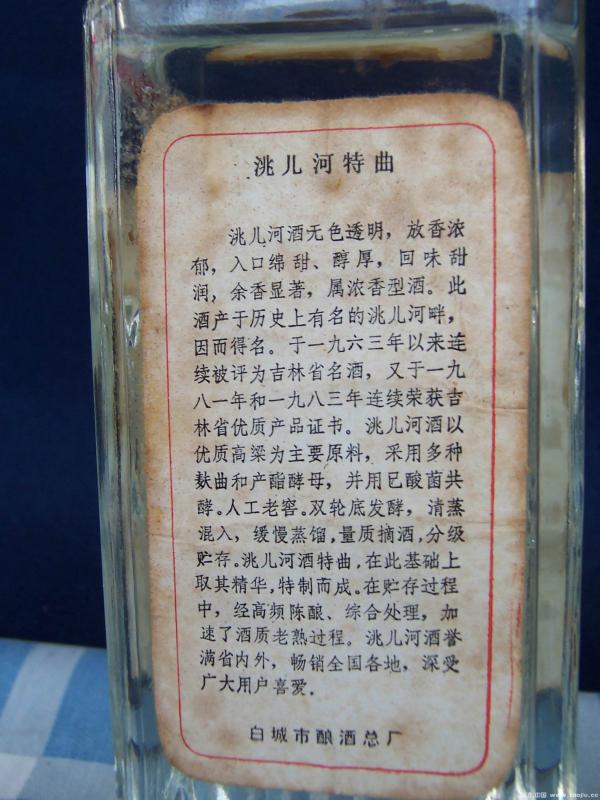 洮儿河特曲
洮儿河酒无色透明，放香浓
郁，入口绵甜、醇厚，回味甜
润，余香显著，属浓香型酒。此
酒产于历史上有名的洮儿河畔，
因而得名。于一九六三年以来连
续被评为吉林省名酒，又于一九
八一年和一九八三年连续荣获吉
林省优质产品证书。洮儿河酒以
优质高梁为主要原料，采用多种
麸曲和产酯酵母，并用已酸菌共
酵。人工老窖。双轮底发酵，清蒸
混入，缓慢蒸馏，量质摘酒，分级
贮存。洮儿河酒特曲，在此基础上
取其精华，特制而成。在贮存过程
中，经高频陈酿、综合处理，加
速了酒质老熟过程。洮儿河酒誉
满省内外，畅销全国各地，深受
广大用户喜爱.
白城市酿酒总厂